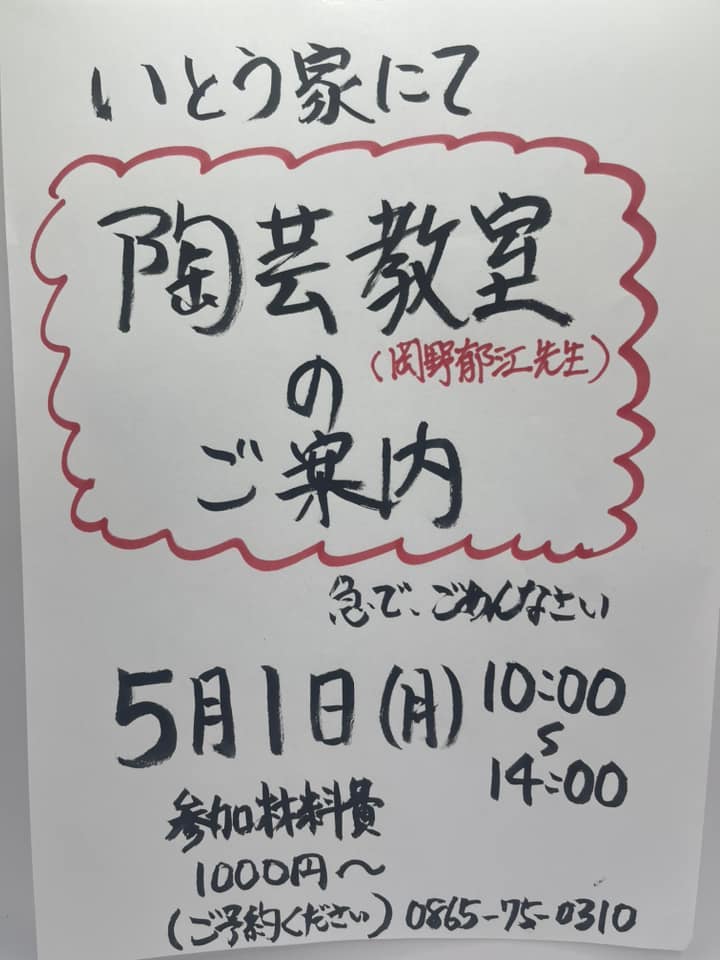 いとう家にて
陶芸教室
(岡野郁江先生)
の
ご案内
急で、ごめんなさい
5月1日(月) 10:00
〜
14:00
参加材料費
1000円〜
(ご予約ください) 0865-75-0310